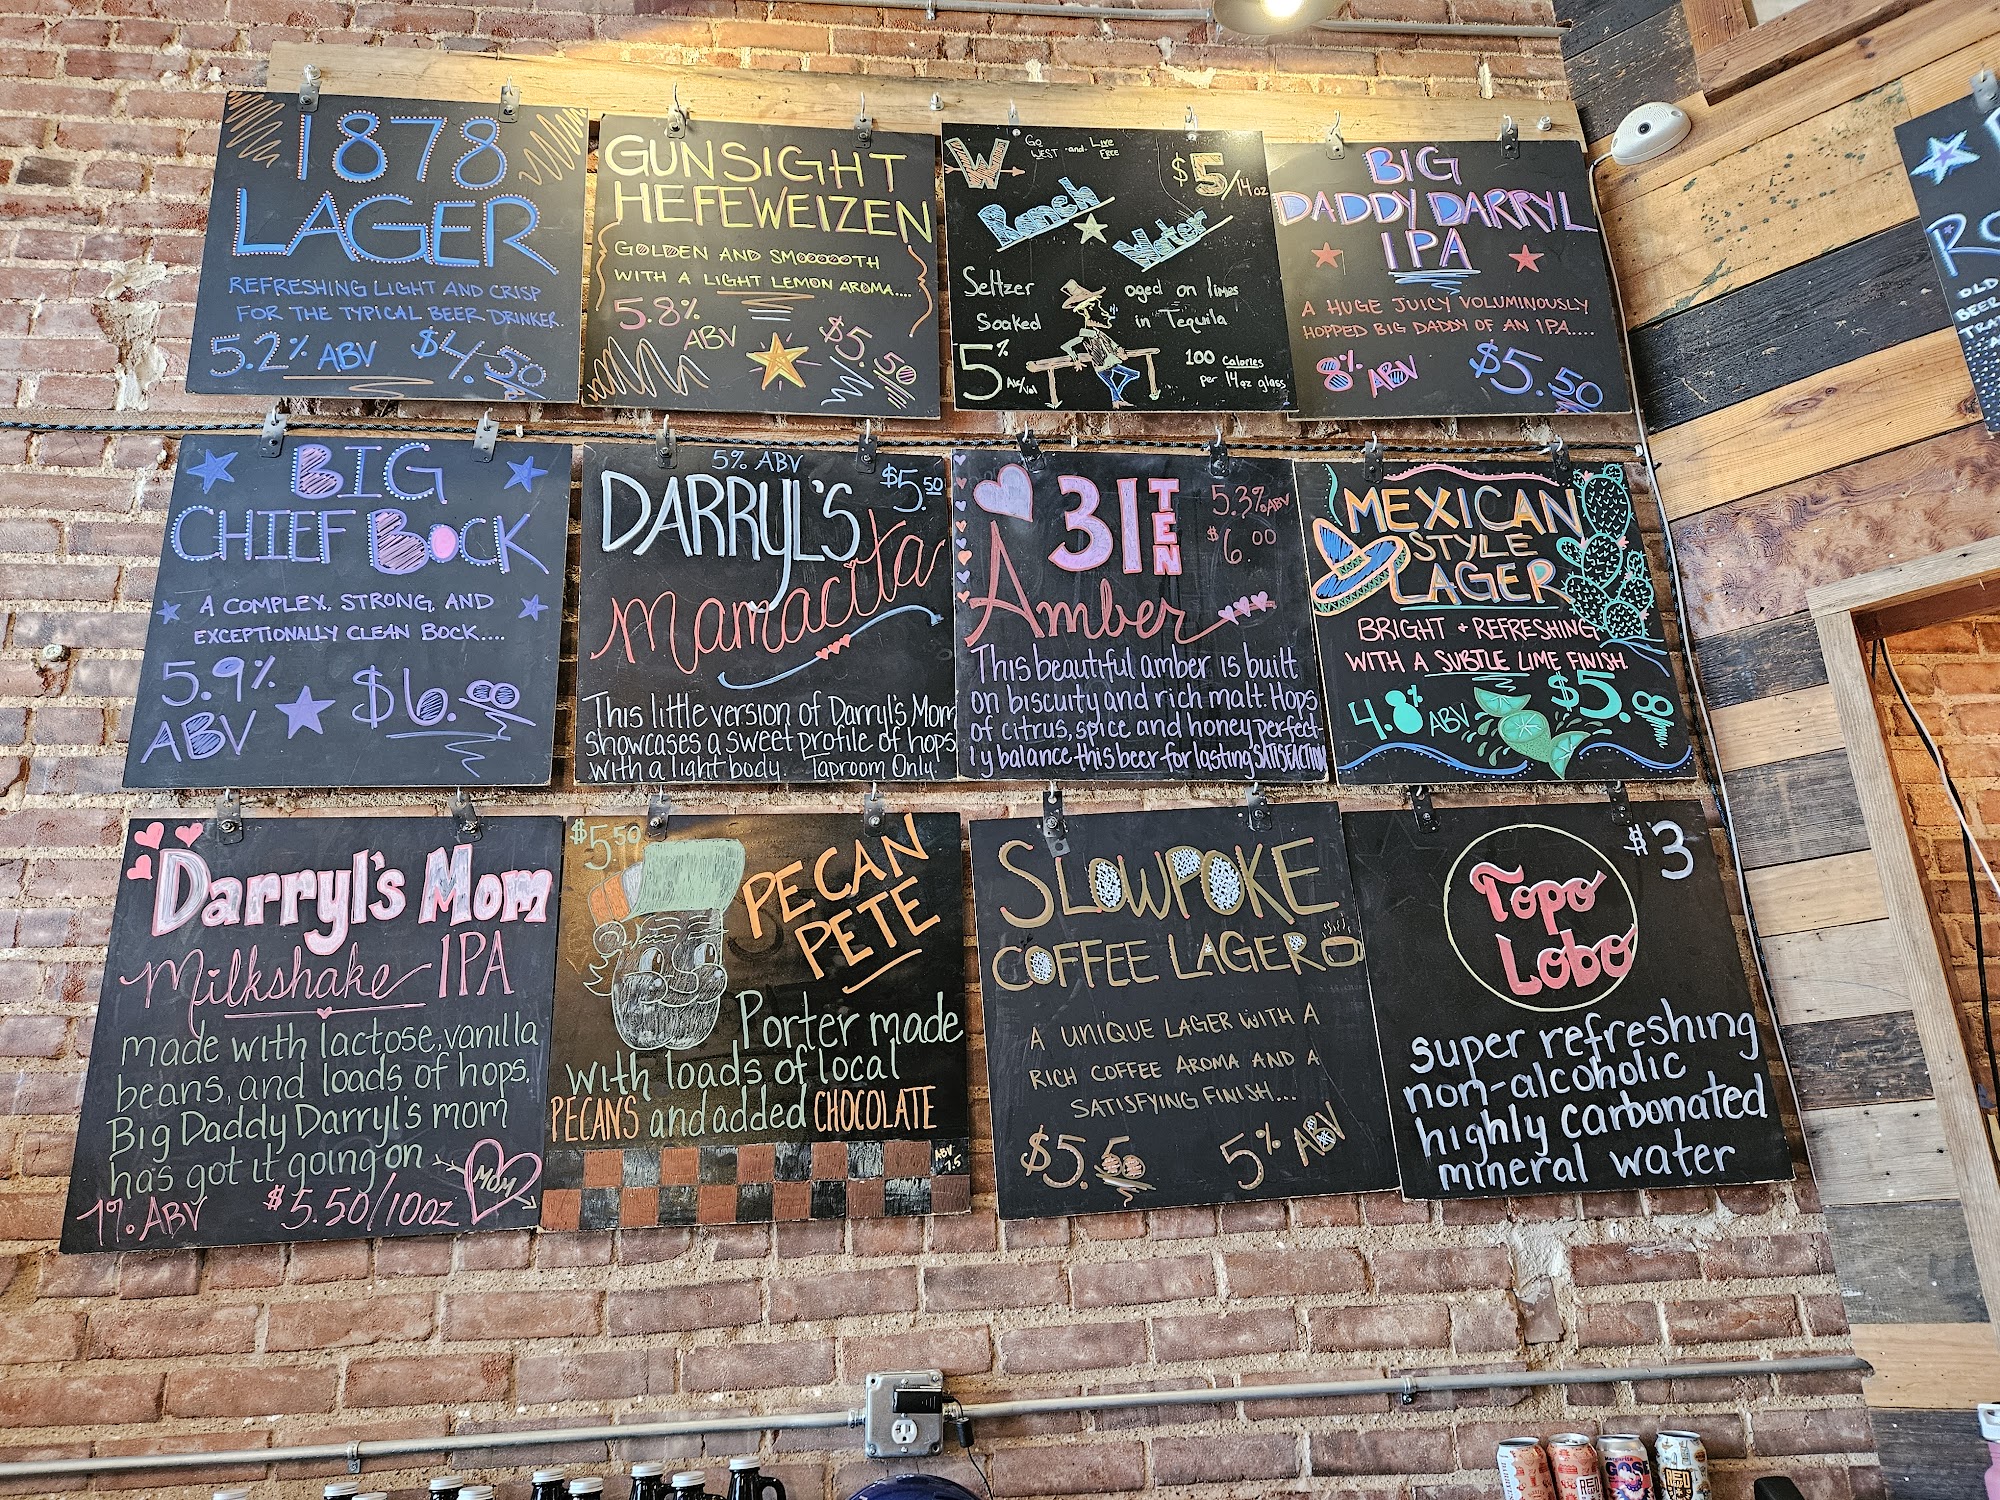 1878
LAGER
REFRESHING LIGHT AND CRISP
FOR THE TYPICAL BEER DRINKER.
5.2% ABV $4.50
GUNSIGHT
HEFEWEIZEN
GOLDEN AND SMOOOOOTH
WITH A LIGHT LEMON AROMA....
5.8%
ABV
$5.50
W
GO
WEST -and- Live
Free
$5/14oz
Ranch
Water
Seltzer aged on limes
Soaked in Tequila
5% Alc/Vol
100 Calories
per 14oz glass
BIG
DADDY DARRYL
IPA
A HUGE JUICY VOLUMINOUSLY
HOPPED BIG DADDY OF AN IPA.....
8% ABV $5.50
BIG
CHIEF BOCK
A COMPLEX, STRONG, AND
EXCEPTIONALLY CLEAN BOCK....
5.9%
ABV
$6.00
5% ABV
$5.50
DARRYL'S
Mamacita
This little version of Darryl's Mom
showcases a sweet profile of hops
with a light body. Taproom Only.
31TEN
5.3% ABV
$6.00
Amber
This beautiful amber is built
on biscuity and rich malt. Hops
of citrus, spice and honey perfect-
ly balance this beer for lasting SATISFACTION
MEXICAN
STYLE
LAGER
BRIGHT + REFRESHING
WITH A SUBTLE LIME FINISH.
4.8% ABV
$5.00
Darryl's Mom
Milkshake IPA
made with lactose, vanilla
beans, and loads of hops.
Big Daddy Darryl's mom
has got it going on
MOM
7% ABV $5.50/10oz
$5.50
PECAN
PETE
Porter made
with loads of local
PECANS and added CHOCOLATE
ABV
7.5
SLOWPOKE
COFFEE LAGER
A UNIQUE LAGER WITH A
RICH COFFEE AROMA AND A
SATISFYING FINISH...
$5.50 5% ABV
$3
Topo
Lobo
super refreshing
non-alcoholic
highly carbonated
mineral water
OLD
BEER
TRA